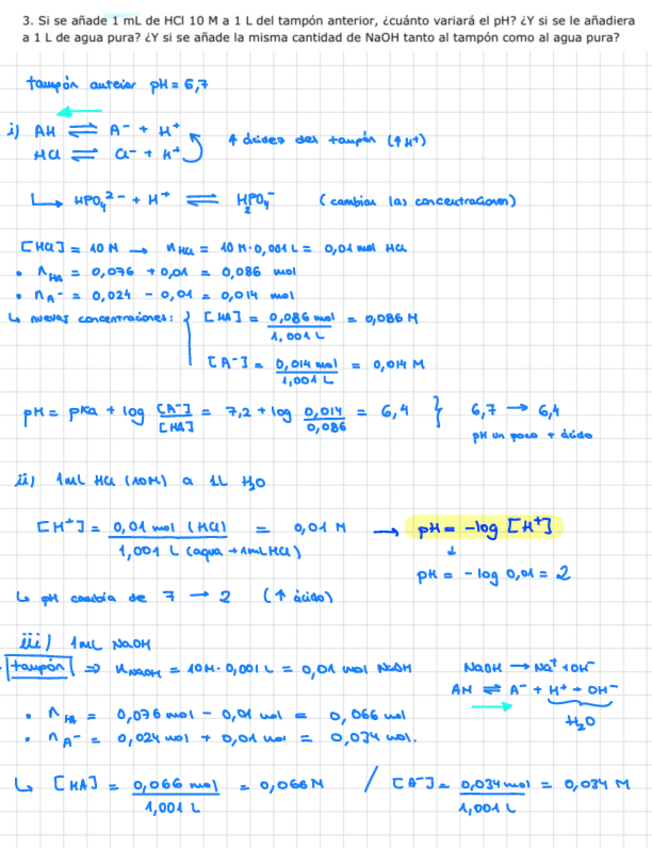 3. Si se añade 1 mL de HCl 10 M a 1 L del tampón anterior, ¿cuánto variará el pH? ¿Y si se le añadiera
a 1 L de agua pura? ¿Y si se añade la misma cantidad de NaOH tanto al tampón como al agua pura?
tampón anterior pH = 6,7
i) AH ⇌ A⁻ + H⁺
HCl ⇌ Cl⁻ + H⁺
↑ acidez del tampón (↑H⁺)
↳ HPO₄²⁻ + H⁺ ⇌ H₂PO₄⁻ (cambian las concentraciones)
[HCl] = 10 M → n HCl = 10 M · 0,001 L = 0,01 mol HCl
• n HA = 0,076 + 0,01 = 0,086 mol
• n A⁻ = 0,024 - 0,01 = 0,014 mol
↳ nuevas concentraciones: { [HA] = 0,086 mol / 1,001 L = 0,086 M
[A⁻] = 0,014 mol / 1,001 L = 0,014 M
pH = pKa + log [A⁻] / [HA] = 7,2 + log 0,014 / 0,086 = 6,4 } 6,7 → 6,4
pH un poco + ácido
ii) 1mL HCl (10M) a 1L H₂O
[H⁺] = 0,01 mol (HCl) / 1,001 L (agua + 1mL HCl) = 0,01 M → pH = -log [H⁺]
↓
pH = - log 0,01 = 2
↳ pH cambia de 7 → 2 (↑ ácido)
iii) 1mL NaOH
tampón ⇒ n NaOH = 10M · 0,001 L = 0,01 mol NaOH
NaOH → Na⁺ + OH⁻
AH ⇌ A⁻ + H⁺ + OH⁻
H₂O
• n HA = 0,076 mol - 0,01 mol = 0,066 mol
• n A⁻ = 0,024 mol + 0,01 mol = 0,034 mol.
↳ [HA] = 0,066 mol / 1,001 L = 0,066 M / [A⁻] = 0,034 mol / 1,001 L = 0,034 M